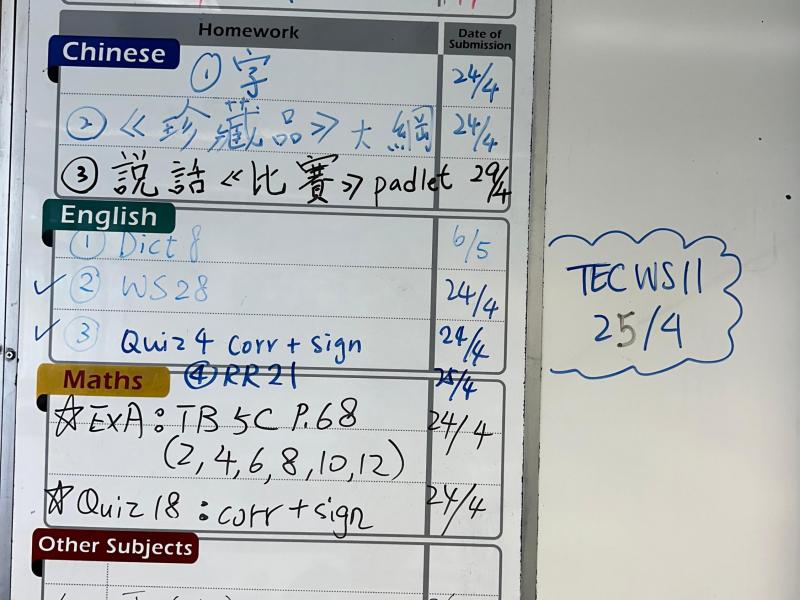 Homework
Date of Submission
Chinese
① 字 24/4
② 《珍藏品》大綱 24/4
③ 說話《比賽》padlet 29/4
English
① Dict 8 6/5
✓ ② WS28 24/4
✓ ③ Quiz 4 corr + sign 24/4
④ RR21 25/4
Maths
☆ ExA: TB 5C P.68 24/4
(2, 4, 6, 8, 10, 12)
☆ Quiz 18: corr + sign 24/4
Other Subjects
TEC WS11
25/4